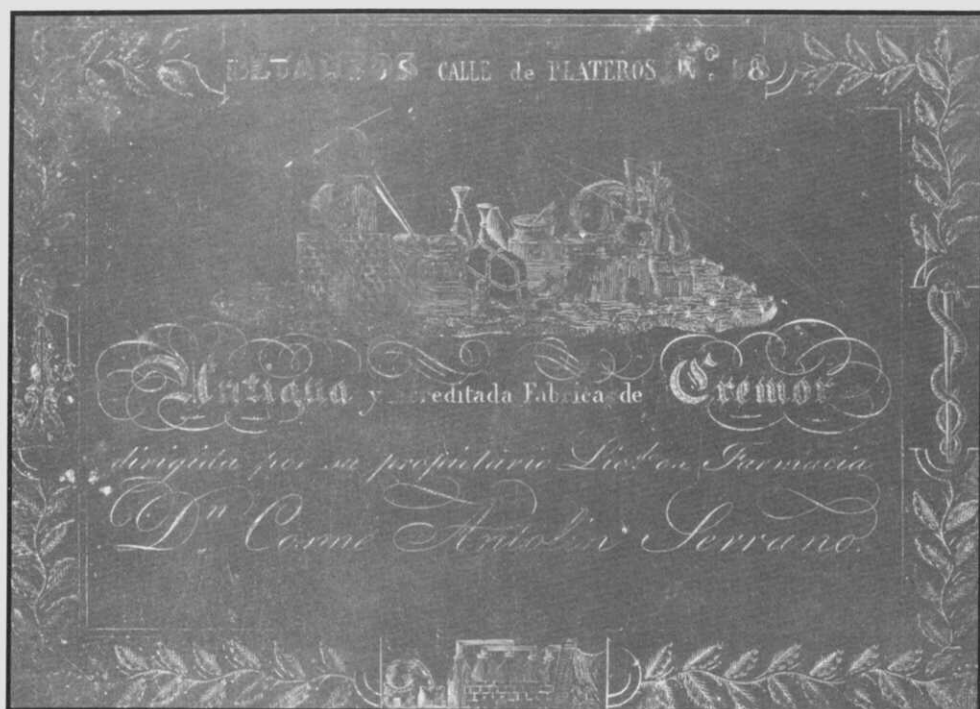 BETANZOS CALLE de PLATEROS Nº.
Antigua y acreditada Fabrica de Cremor
dirigida por su propietario Licdo. en Farmacia
Dn. Cosme Antolin Serrano.